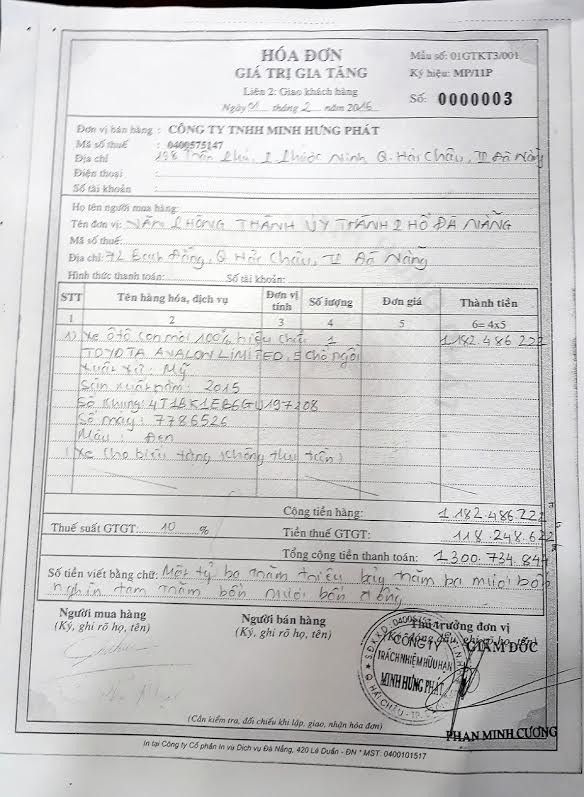 HÓA ĐƠN
GIÁ TRỊ GIA TĂNG
Liên 2: Giao khách hàng
Ngày 01 tháng 2 năm 2016
Mẫu số: 01GTKT3/001
Ký hiệu: MP/11P
Số: 0000003
Đơn vị bán hàng : CÔNG TY TNHH MINH HƯNG PHÁT
Mã số thuế : 0400575147
Địa chỉ 198 Trần Phú, P. Phước Ninh Q. Hải Châu, TP Đà Nẵng
Điện thoại :
Số tài khoản :
Họ tên người mua hàng:
Tên đơn vị: VĂN PHÒNG THÀNH ỦY THÀNH PHỐ ĐÀ NẴNG
Mã số thuế:
Địa chỉ: 72 Bạch Đằng, Q Hải Châu, TP Đà Nẵng
Hình thức thanh toán: Số tài khoản:
STT Tên hàng hóa, dịch vụ Đơn vị tính Số lượng Đơn giá Thành tiền
1 2 3 4 5 6= 4x5
1) Xe ôtô con mới 100% hiệu chữ 1 1.182.486.222
TOYOTA AVALON LIMITED, 5 chỗ ngồi
Xuất xứ: Mỹ
Sản xuất năm: 2015
Số khung: 4T1BK1EB6GU197208
Số máy: 7786526
Màu : Đen
(Xe cho biếu tặng không thu tiền)
Cộng tiền hàng: 1.182.486.222
Thuế suất GTGT: 10 % Tiền thuế GTGT: 118.248.622
Tổng cộng tiền thanh toán: 1.300.734.844
Số tiền viết bằng chữ: Một tỷ ba trăm triệu bảy trăm ba mươi bốn
nghìn tám trăm bốn mươi bốn đồng
Người mua hàng
(Ký, ghi rõ họ, tên)
Người bán hàng
(Ký, ghi rõ họ, tên)
Thủ trưởng đơn vị
(Ký, đóng dấu, ghi rõ họ, tên)
GIÁM ĐỐC
CÔNG TY
TRÁCH NHIỆM HỮU HẠN
MINH HƯNG PHÁT
Q. HẢI CHÂU - TP.
PHAN MINH CƯƠNG
(Cần kiểm tra, đối chiếu khi lập, giao, nhận hóa đơn)
In tại Công ty Cổ phần In và Dịch vụ Đà Nẵng, 420 Lê Duẩn - ĐN * MST: 0400101517